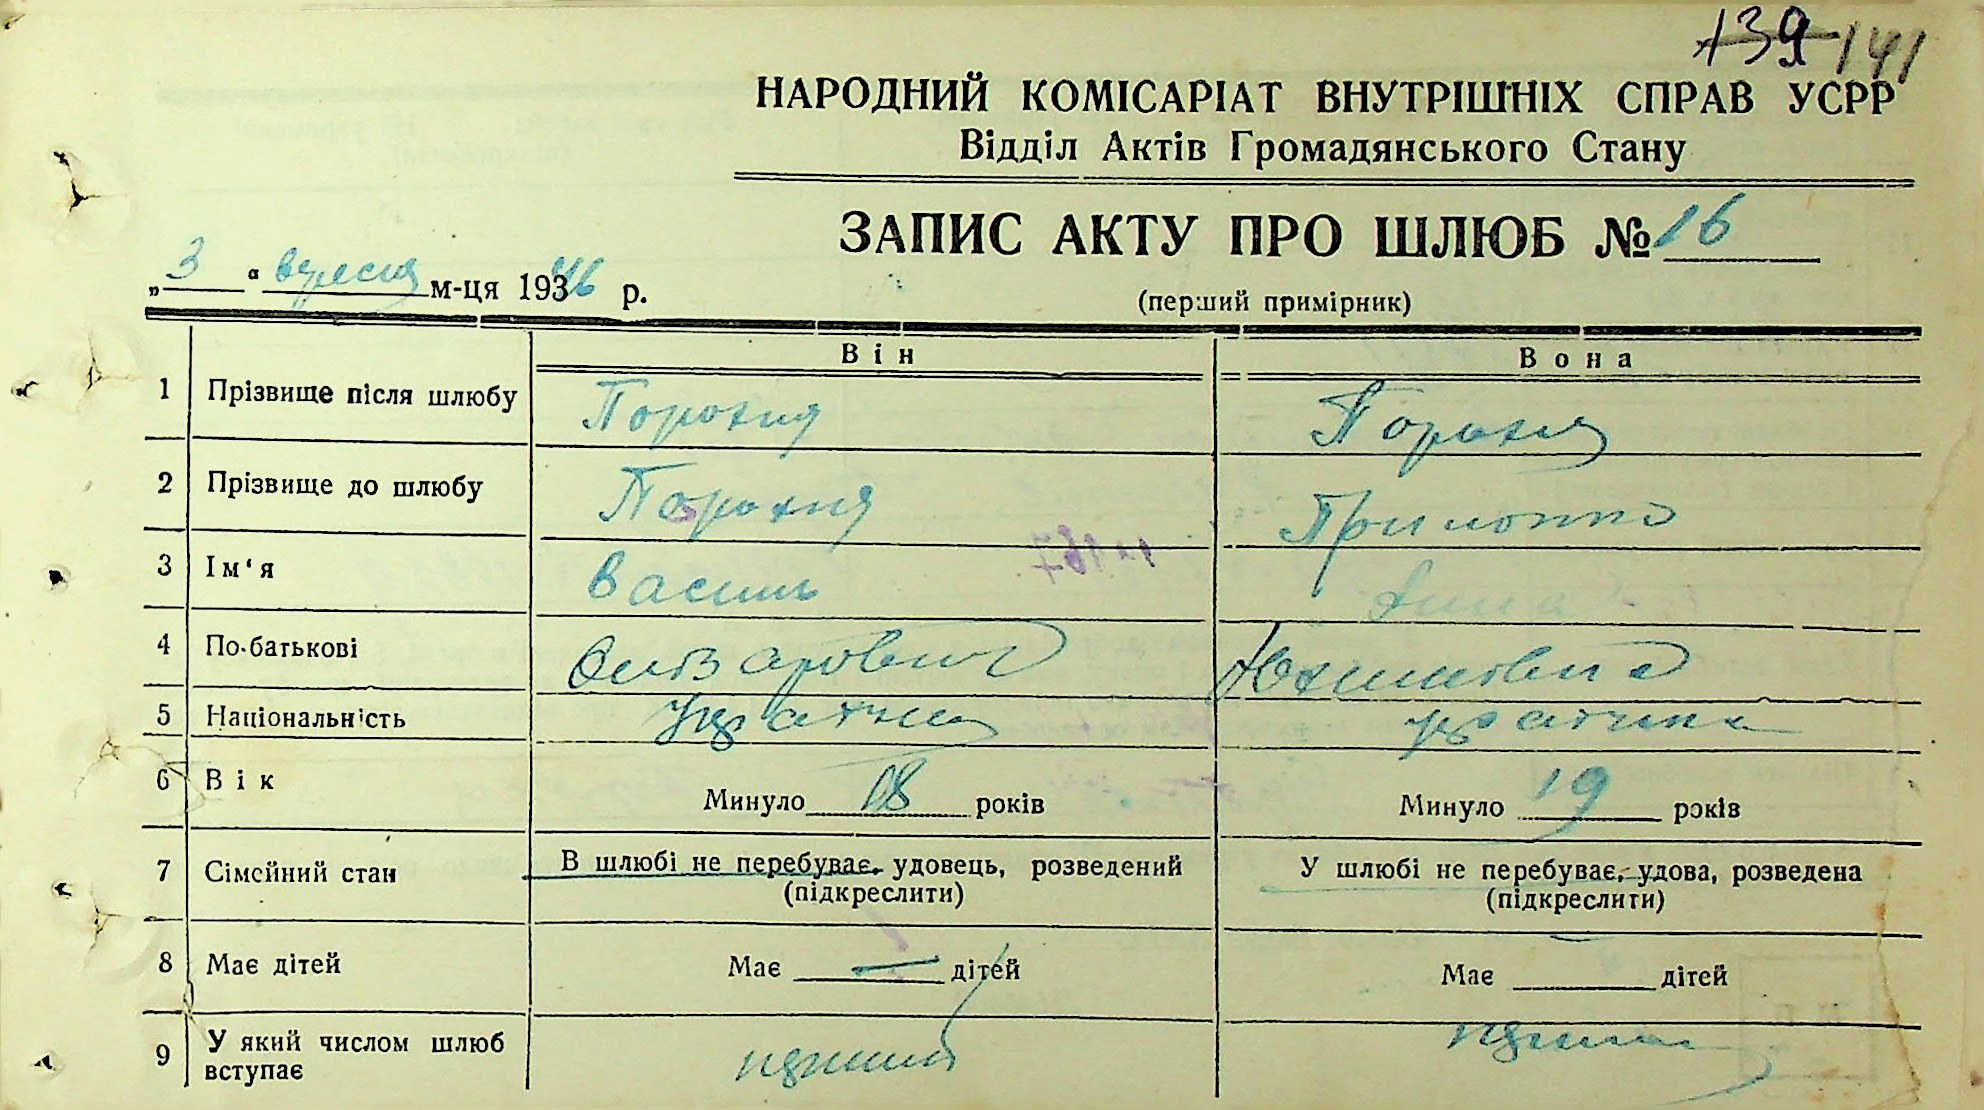 139 141
НАРОДНИЙ КОМІСАРІАТ ВНУТРІШНІХ СПРАВ УСРР
Відділ Актів Громадянського Стану
ЗАПИС АКТУ ПРО ШЛЮБ № 16
„ 3 “ вересня м-ця 1936 р.
(перший примірник)
Він Вона
1 Прізвище після шлюбу Порохня Порохня
2 Прізвище до шлюбу Порохня
3 Ім‘я Василь Анна
4 По-батькові
5 Національність
6 Вік Минуло 18 років Минуло 19 років
7 Сімейний стан В шлюбі не перебуває, удовець, розведений У шлюбі не перебуває, удова, розведена
(підкреслити) (підкреслити)
8 Має дітей Має — дітей Має дітей
9 У який числом шлюб
вступає